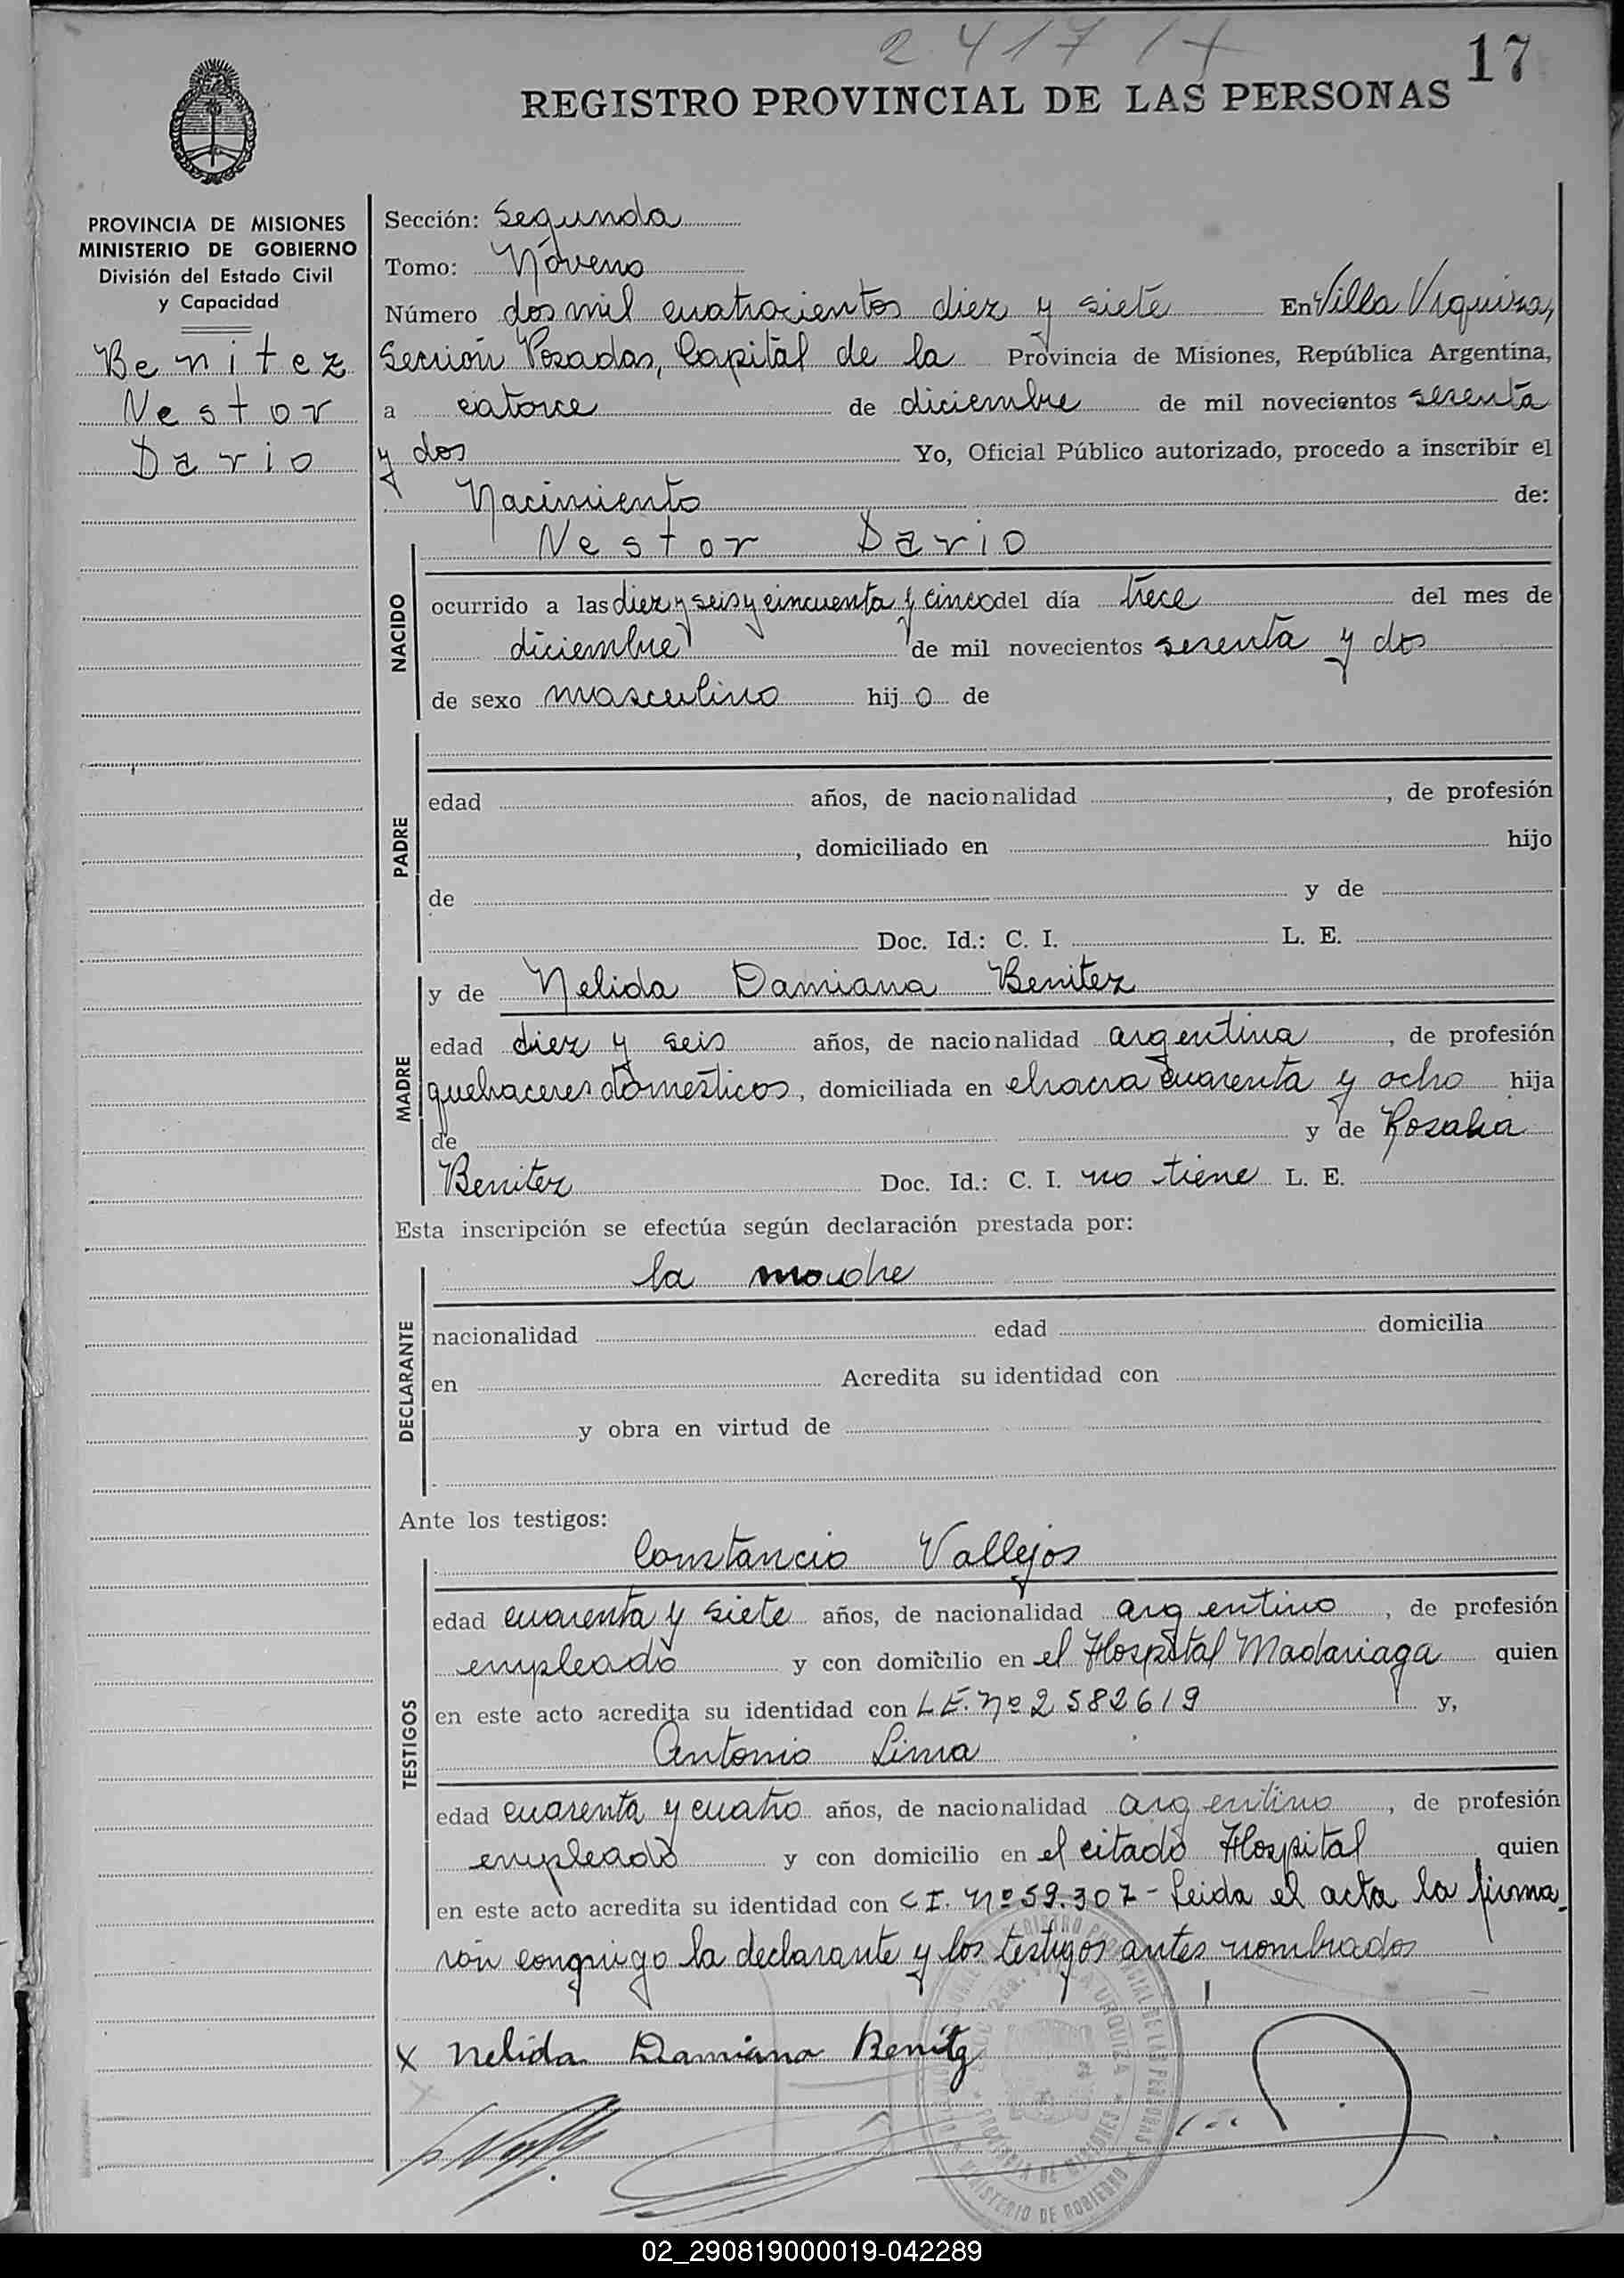 2417/X
17
REGISTRO PROVINCIAL DE LAS PERSONAS
PROVINCIA DE MISIONES
MINISTERIO DE GOBIERNO
División del Estado Civil
y Capacidad
Benitez
Nestor
Dario
Sección: Segunda
Tomo: Noveno
Número dos mil cuatrocientos diez y siete En Villa Urquiza,
Sección Posadas, Capital de la Provincia de Misiones, República Argentina,
a catorce de diciembre de mil novecientos sesenta
y dos Yo, Oficial Público autorizado, procedo a inscribir el
Nacimiento de:
NACIDO
Nestor Dario
ocurrido a las diez y seis y cincuenta y cinco del día trece del mes de
diciembre de mil novecientos sesenta y dos
de sexo masculino hijo de
PADRE
edad años, de nacionalidad , de profesión
, domiciliado en hijo
de y de
Doc. Id.: C. I. L. E.
MADRE
y de Nelida Damiana Benitez
edad diez y seis años, de nacionalidad argentina , de profesión
quehaceres domésticos, domiciliada en chacra cuarenta y ocho hija
de y de Rosalia
Benitez Doc. Id.: C. I. no tiene L. E.
Esta inscripción se efectúa según declaración prestada por:
DECLARANTE
la madre
nacionalidad edad domicilia
en Acredita su identidad con
y obra en virtud de
Ante los testigos:
TESTIGOS
Constancio Vallejos
edad cuarenta y siete años, de nacionalidad argentino , de profesión
empleado y con domicilio en el Hospital Madariaga quien
en este acto acredita su identidad con L.E. Nº 2582619 y,
Antonio Lima
edad cuarenta y cuatro años, de nacionalidad argentino , de profesión
empleado y con domicilio en el citado Hospital quien
en este acto acredita su identidad con C I. Nº 59.307 - Leida el acta la firma_
ron conmigo la declarante y los testigos antes nombrados
x Nelida Damiana Benitz
PROVINCIA DE MISIONES
MINISTERIO DE GOBIERNO
02_290819000019-042289